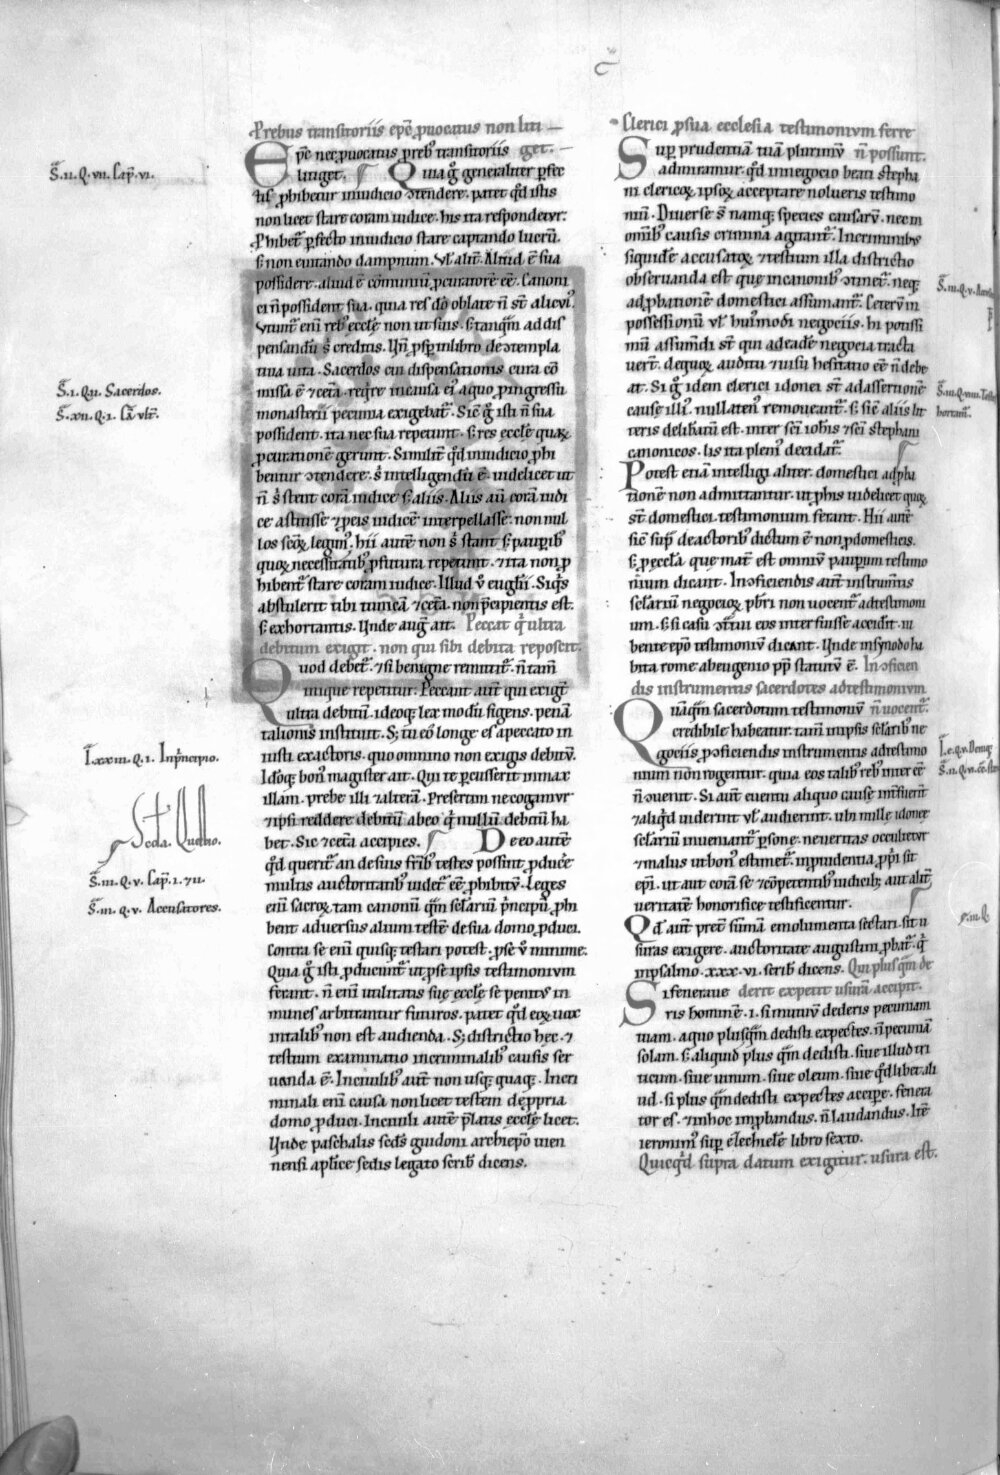 P̄rebus transitoriis ep̄c ꝓuocatus non liti
Ep̄c nec ꝓuocatus ꝓ reb᷒ transitoriis get.
litiget. Quia gͦ generaliter ꝑfec
tis ꝓhibetur in iudicio ↄtendere. patet qd̄ istis
non licet stare coram iudice. his ita respondetur.
Phibet᷑ ꝑfecto in iudicio stare captando lucrū.
s; non euitando dampnum. Vl̓ alit̓. Aliud ē sua
possidere. aliud ē cōmuniū ꝓcuratorē eē. Canoni
ci n̄ possident sua. quia res dō oblate n̄ st̄ alicui᷒.
Vtunt᷑ eni reb᷒ eccl̄ie non ut suis. s; tanq̄m ad dis
pensandū s᷒ creditis. Vn̄ ꝓsꝑ in libro de ↄtempla
tiua uita. Sacerdos cui dispensationis cura cō
missa ē ⁊ cetā. reqͥrere in causa ei᷒. a quo ꝓ ingressu
monasterii pecunia exigebat᷑. Sic gͦ isti n̄ sua
possident. ita nec sua repetunt. s; res eccl̄ie quaꝝ
ꝓcurationē gerunt. Similit̓ qd̄ in iudicio ꝓhi
bentur ↄtendere. s᷒ intelligendū ē. uidelicet ut
n̄ ꝓ s᷒ stent corā iudice s; aliis. Aliis aū corā iudi
ce astitisse ⁊ ꝓ eis iudicē interpellasse. non nul
los sc̄oꝝ legim᷒. hii autē non ꝓ s᷒ stant s; ꝓ pauꝑib᷒
quoꝝ necessitatib᷒ ꝓfutura repetunt. ⁊ ita non ꝓ
hibent᷑ stare coram iudice. Illud ů euḡlii. Siqͥs
abstulerit tibi tunicā ⁊ cetā. non p̄cipientis est.
s; exhortantis. Vnde aug̓ ait. Peccat qͥ ultra
debitum exigit. non qui sibi debita reposcit.
Quod debet᷑. ⁊ si benigne remittit᷑. n̄ tam̄
inique repetitur. Peccant aūt qui exigt̄
ultra debitū. ideoq; lex modū figens. penā
talionis instituit. S; tu eo longe es a peccato in
iusti exactoris. quo omnino non exigis debitū.
Idoq; bon᷒ magister ait. Qui te ꝑcusserit in max
illam. prebe illi ⁊ alterā. Presertim ne cogamur
⁊ ipsi reddere debitū ab eo qͥ nullū debitū ha
bet. Sic ⁊ cetā accipies. De eo autē
qd̄ querit᷑ an de suis fr̄ib᷒ testes possint ꝓducͤe
multis auctoritatib᷒ uidet᷑ eē ꝓhibitū. Leges
eni sacroꝝ tam canonū q̄m sclariū p̄ncipū. ꝓhi
bent aduersus alium testē de sua domo ꝓduci.
Contra se eni quisq; testari potest. ꝓ se ů minime.
Quia gͦ isti ꝓducunt᷑ ut ꝓ se ipsis testimonium
ferant. n̄ eni utilitatis sue eccl̄ie se penitus in
munes arbitrantur futuros. patet qd̄ eoꝝ uox
in talib᷒ non est audienda. S; districtio hec. ⁊
testium examinatio in criminalib᷒ causis ser
uanda ē. In ciuilib᷒ aūt non usq; quaq;. In cri
minali eni causa non licet testem de ꝓpria
domo ꝓduci. In ciuili autē p̄latis eccl̄ie licet.
Vnde paschalis sc̄ds guidoni archiep̄o uien
nensi apl̄ice sedis legato scrib̄ dicens.
Clerici ꝓ sua ecclesia testimonium ferre
Suꝑ prudentiā tuā plurimū n̄ possunt.
admiramur. qd̄ in negocio beati stepha
ni clericoꝝ ipsoꝝ acceptare nolueris testimo
niū. Diuerse s; namq; species causarū. nec in
omib᷒ causis crimina agitant᷑. In criminib᷒
siquidē accusatoꝝ ⁊ testium illa districtio
obseruanda est que in canonib᷒ ↄtinet᷑. neq;
ad ꝓbationē domestici assumant᷑. Ceterū in
possessionū ul̓ hui᷒modi negociis. hi potissi
mū assumdi st̄ qui ad eadē negocia tracta
uert̄. de quoꝝ auditu ⁊ uisu hesitatio eē n̄ debe
at. Si gͦ idem clerici idonei st̄ ad assertionē
cause illi᷒. nullaten᷒ remoueant᷑. s; sic aliis lit
teris delibatū est. inter sc̄i ioh̄is ⁊ sc̄i stephani
canonicos. lis ita pleni᷒ decidat᷑.
Potest etiā intelligi aliter. domestici ad ꝓba
tionē non admittantur. ut ꝓ his uidelicet quoꝝ
st̄ domestici. testimonium ferant. Hii autē
sic sup̄ de actorib᷒ dictum ē non ꝓ domesticis.
s; ꝓ eccl̄ia que mat̓ est omniū pauꝑum testimo
nium dicant. In oficiendis aūt instrumtis
sclarium negocioꝝ. pb̄ri non uocent᷑ ad testimoni
um. s; si casu ↄtrii eos interfuisse accidit. iu
bente ep̄o testimoniū dicant. Vnde in synodo ha
bita rome ab eugenio pp̄ statutū ē. In oficien
dis instrumentis sacerdotes ad testimonium
Quāq̄m sacerdotum testimoniū n̄ uocent᷑.
credibile habeatur. tam̄ in ipsis sclarib᷒ ne
gociis ꝓ oficiendis instrumentis ad testimo
nium non rogentur. quia eos talib᷒ reb᷒ inter eē
n̄ ↄuenit. Si aūt euentu aliquo cause int̓fuerīt
⁊ aliqd̄ uiderint ul̓ audierint. ubi nulle idonee
sclarium inueniant᷑ ꝑsone. ne ueritas occulietur
⁊ malus ut bon᷒ estimet᷑. in prudentia ꝓpͥi sit
ep̄i. ut aut corā se ⁊ ↄpetentib᷒ iudicib᷒ aut alit̓
ueritatē honorifice testificentur.
Qd̄ aūt pret̓ sūmā emolumenta sectari. sit u
suras exigere. auctoritate augustini ꝓbat᷑. qͥ
in psalmo .xxx.vi. scrib̄ dicens. Qui plus q̄m de
Si feneraue derit expetit usurā accipit.
ris hominē .i. si mutuū dederis pecuniam
tuam. a quo plus q̄m dedisti expectes. n̄ pecuniā
solam. s; aliquid plus q̄m dedisti. siue illud tri
ticum. siue uinum. siue oleum. siue qd̄libet ali
ud. si plus q̄m dedisti expectes acciꝑe. fenera
tor es. ⁊ in hoc inꝓbandus. n̄ laudandus. Itē
ieronim᷒ suꝑ eȝechielē libro sexto.
Quicqͥd supra datum exigitur. usura est.
S̄.ii.Q.vii. Cap̄.vi.
S̄.i.Q.ii. Sacerdos.
S̄.xii.Q.i. Ca᷒ ult̄.
I.xxiii.Q.i. In p̄ncipio.
Scda. Questio.
S̄.iii.Q.v. Cap̄.i.⁊ii.
S̄.iii.Q.v. Accusatores.